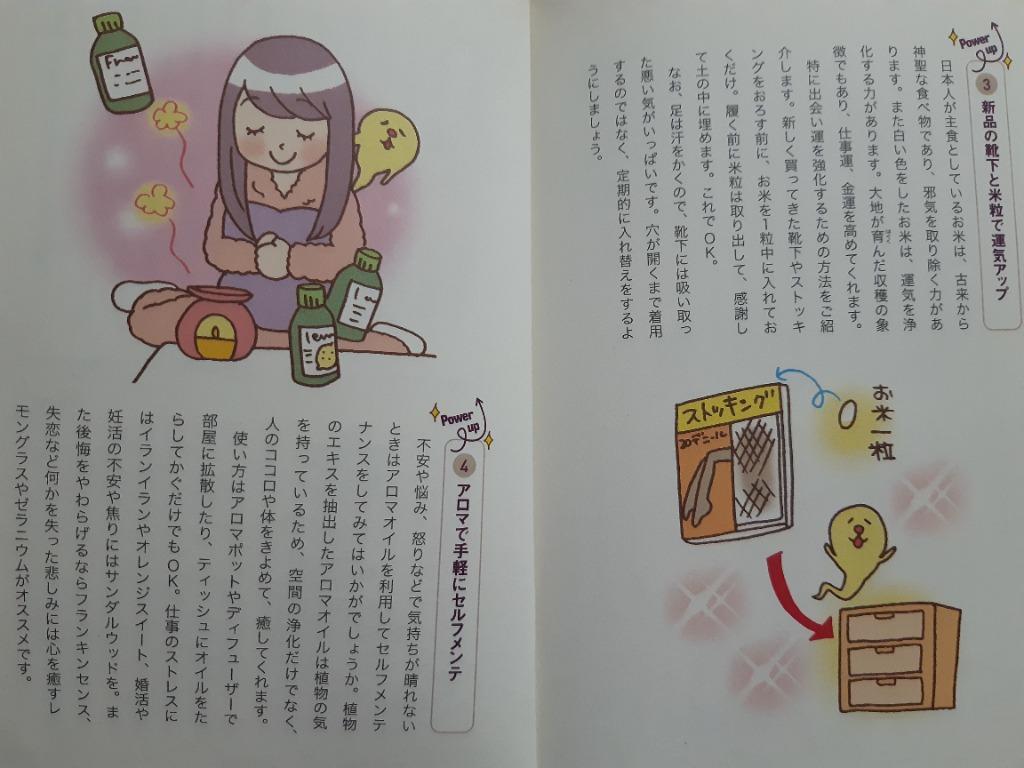 Power up
3 新品の靴下と米粒で運気アップ
日本人が主食としているお米は、古来から
神聖な食べ物であり、邪気を取り除く力があ
ります。また白い色をしたお米は、運気を浄
化する力があります。大地が育んだ収穫の象
はぐく
徴でもあり、仕事運、金運を高めてくれます。
特に出会い運を強化するための方法をご紹
介します。新しく買ってきた靴下やストッキ
ングをおろす前に、お米を1粒中に入れてお
くだけ。履く前に米粒は取り出して、感謝し
て土の中に埋めます。これでOK。
なお、足は汗をかくので、靴下には吸い取っ
た悪い気がいっぱいです。穴が開くまで着用
するのではなく、定期的に入れ替えをするよ
うにしましょう。
お米一粒
ストッキング
20デニール
Power up
4 アロマで手軽にセルフメンテ
不安や悩み、怒りなどで気持ちが晴れない
ときはアロマオイルを利用してセルフメンテ
ナンスをしてみてはいかがでしょうか。植物
のエキスを抽出したアロマオイルは植物の気
を持っているため、空間の浄化だけでなく、
人のココロや体をきよめて、癒してくれます。
使い方はアロマポットやディフューザーで
部屋に拡散したり、ティッシュにオイルをた
らしてかぐだけでもOK。仕事のストレスに
はイランイランやオレンジスイート、婚活や
妊活の不安や焦りにはサンダルウッドを。ま
た後悔をやわらげるならフランキンセンス、
失恋など何かを失った悲しみには心を癒すレ
モングラスやゼラニウムがオススメです。